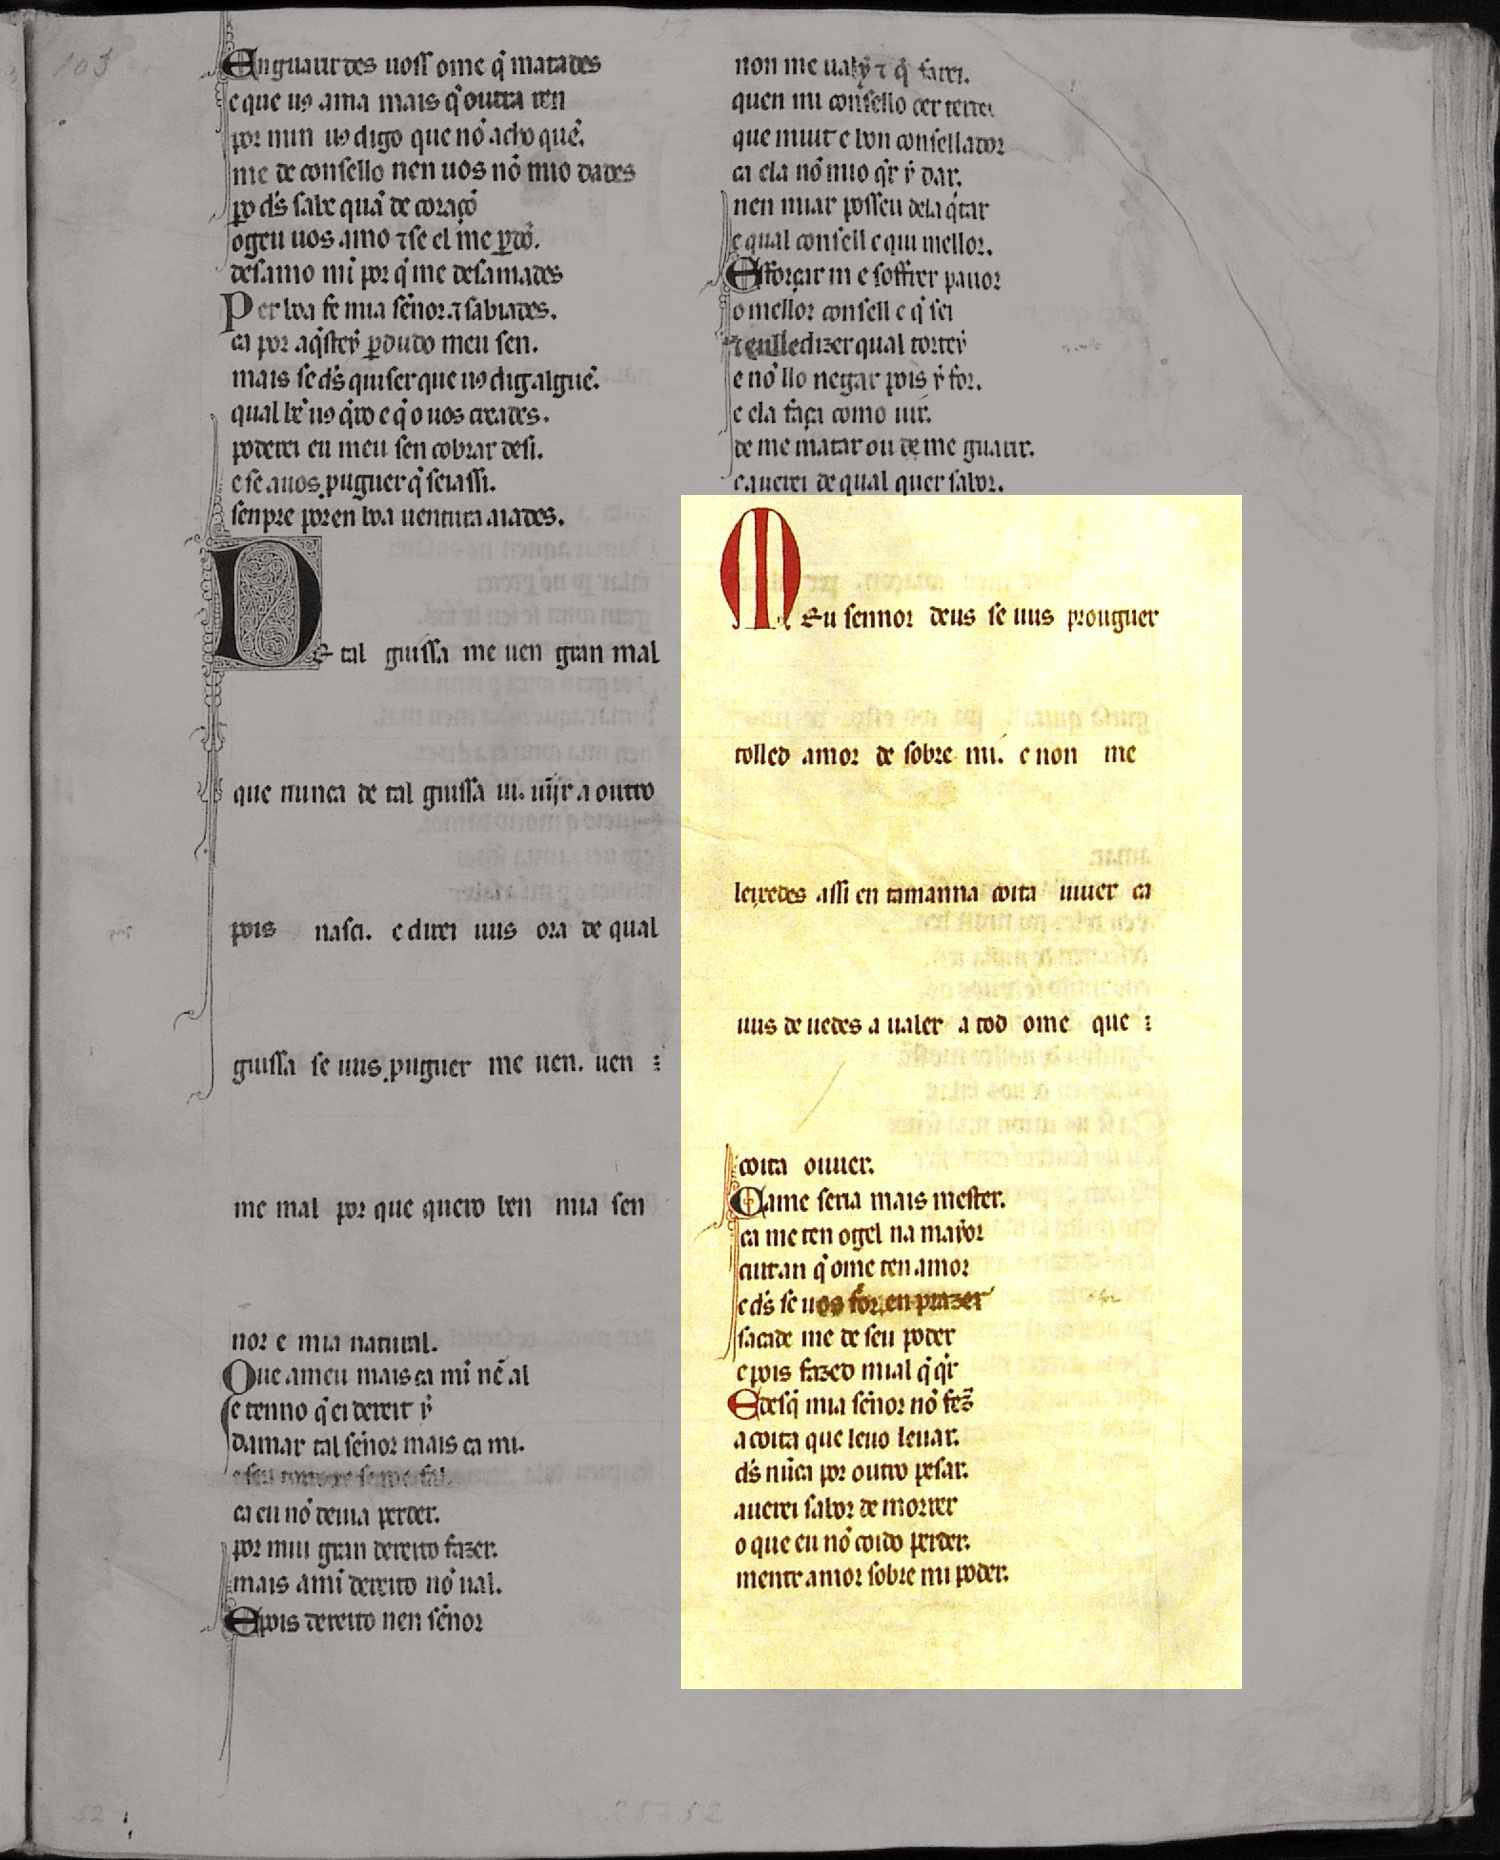 Enguaurdes uoss ome q̃ matades
e que uꝯ ama mais q̃ outra ren
por min uꝯ digo que nõ acho quẽ.
me de consello nen uos nõ mio dades
ꝑo d̃s sabe quã de coraçõ
ogeu uos amo ⁊ se el me ꝑdõ.
desamo mĩ por q̃ me desamades
Per boa fe mia sẽnor. ⁊ sabiades.
ca por aq̃steỹ ꝑdudo meu sen.
mais se d̃s quiser que uꝯ dig alguẽ.
qual bẽ uꝯ q̃ro e q̃ o uos creades.
poderei eu meu sen cobrar desi.
e se auos ꝓuguer q̃ seiassi.
senpre poren boa uentura aiades.
De tal guissa me uen gran mal
que nunca de tal guissa ui. uĩjr a outro
pois nasci. e direi uus ora de qual
guissa se uus ꝓuguer me uen. uen :
me mal por que quero ben mia sen
nor e mia natural.
Que ameu mais ca mĩ nẽ al
e tenno q̃ ei dereit ỹ
damar tal sẽnor mais ca mi.
ca eu nõ deuia perder.
por miui gran dereito fazer.
mais amĩ dereito nõ ual.
E pois dereito nen sẽnor
non me ual ỹ ⁊ q̃ farei.
quen mi consello der terrei
que miut e bon consellador
ca ela nõ mio q̃r ỹ dar.
nen miar posseu dela q̃tar
e qual consell e qui mellor.
Efforçar m e soffrer pauor
o mellor consell e q̃ sei
dizer qual torteỹ
e nõ llo negar pois ỹ for.
e ela faça como uir.
de me matar ou de me guarir.
e auerei de qual quer sabor.
Meu sennor deus se uus prouguer
tolled amor de sobre mi. e non me
leixedes assi en tamanna coita uiuer ca
uus deuedes a ualer a tod ome que :
coita ouuer.
Came seria mais mester.
ca me ten ogel na mayor
cuitan q̃ ome ten amor
e d̃s se uos for en prazer
sacade me de seu poder
e pois fazed mial q̃ q̃r
E desq̃ mia sẽnor nõ fez
a coita que leuo leuar.
d̃s nũca por outro pesar.
auerei sabor de morrer
o que eu nõ coido perder.
mentr amor sobre mi poder.